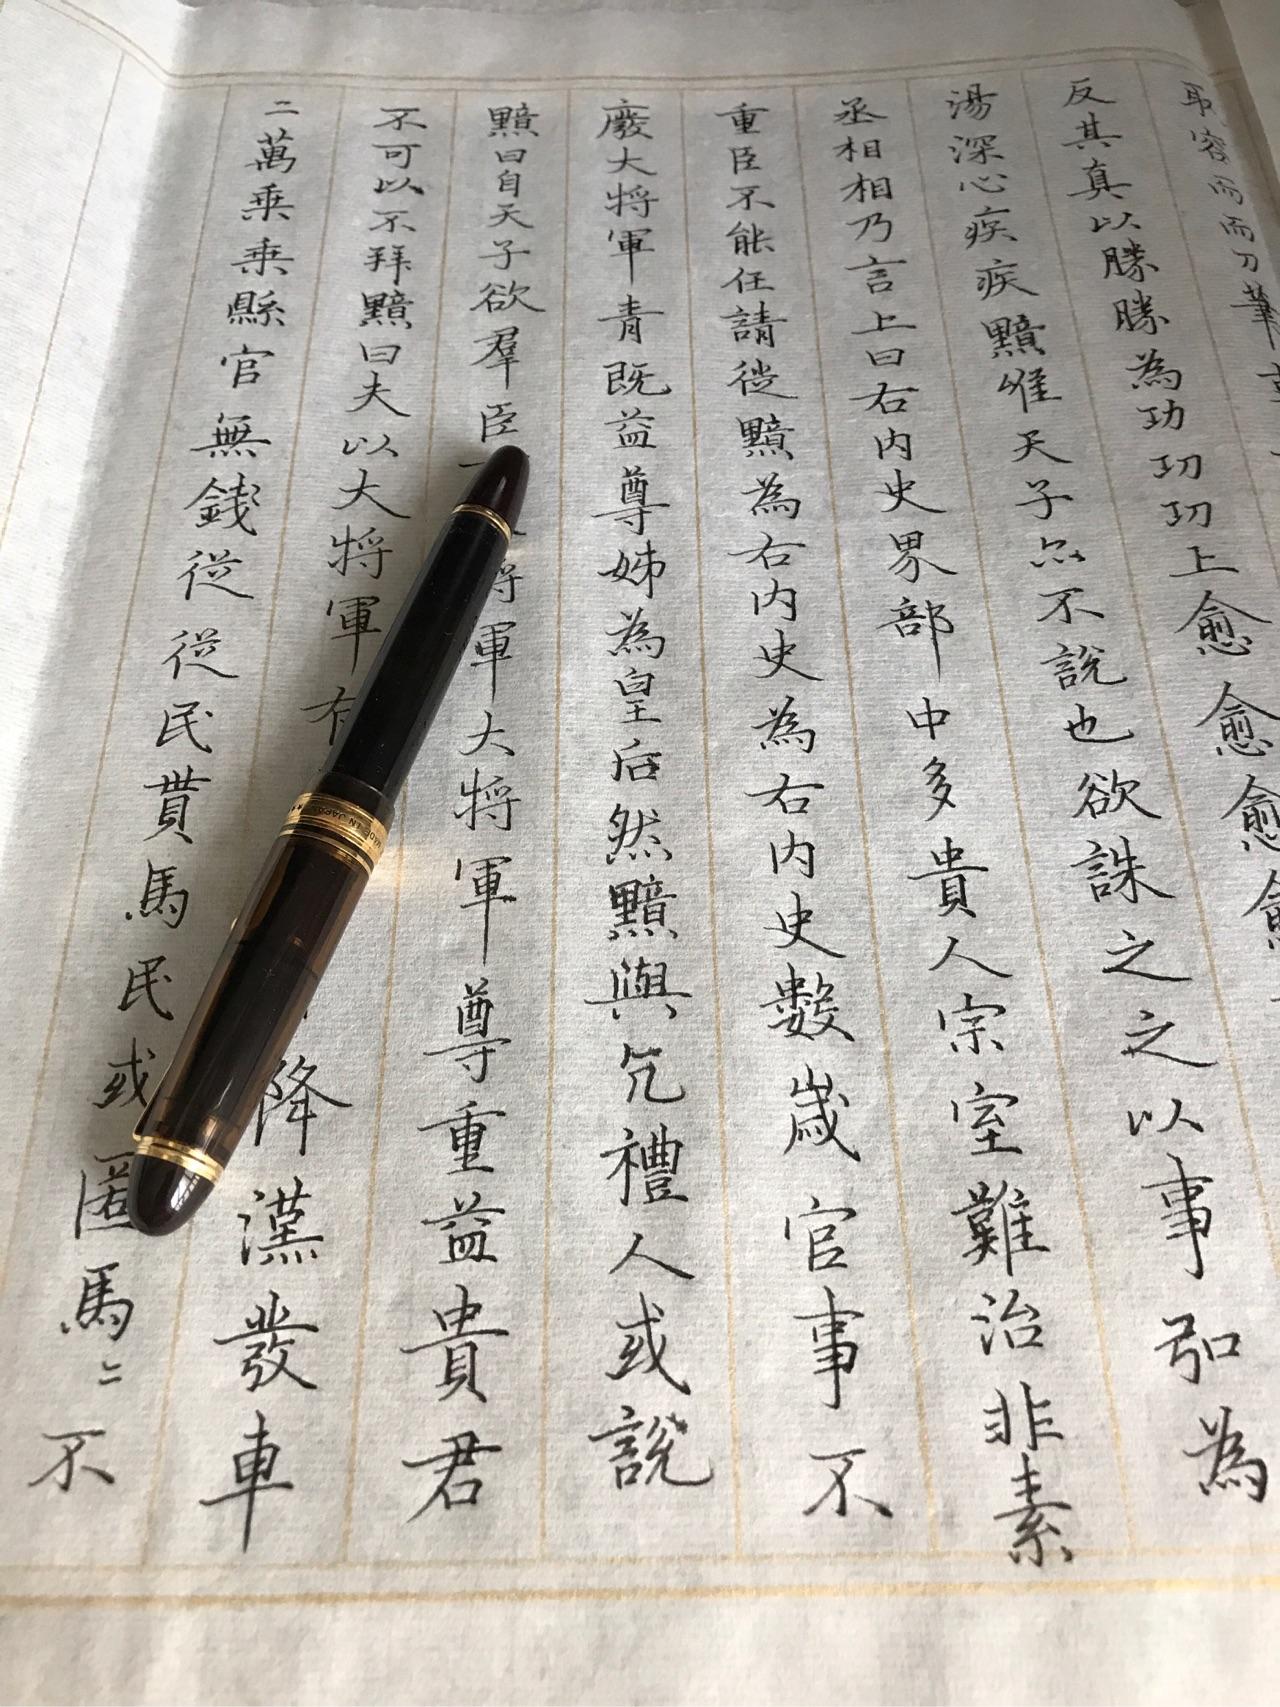 取容而而刀筆
反其真以勝勝為功功功上愈愈愈
湯深心疾疾黯惟天子亦不說也欲誅之之以事弘為
丞相相乃言上曰右内史界部中多貴人宗室難治非素
重臣不能任請徙黯為右内史為右内史數嵗官事不
廢大将軍青既益尊姊為皇后然黯與亢禮人或說
黯曰自天子欲羣臣将軍大将軍尊重益貴君
不可以不拜黯曰夫以大将軍有降漢發車
二萬乗乗縣官無錢従従民貰馬民或匿馬二不
MADE IN JAPAN